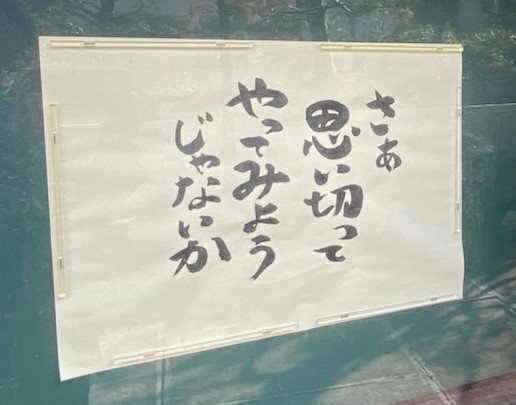 さあ
思い切って
やってみよう
じゃないか